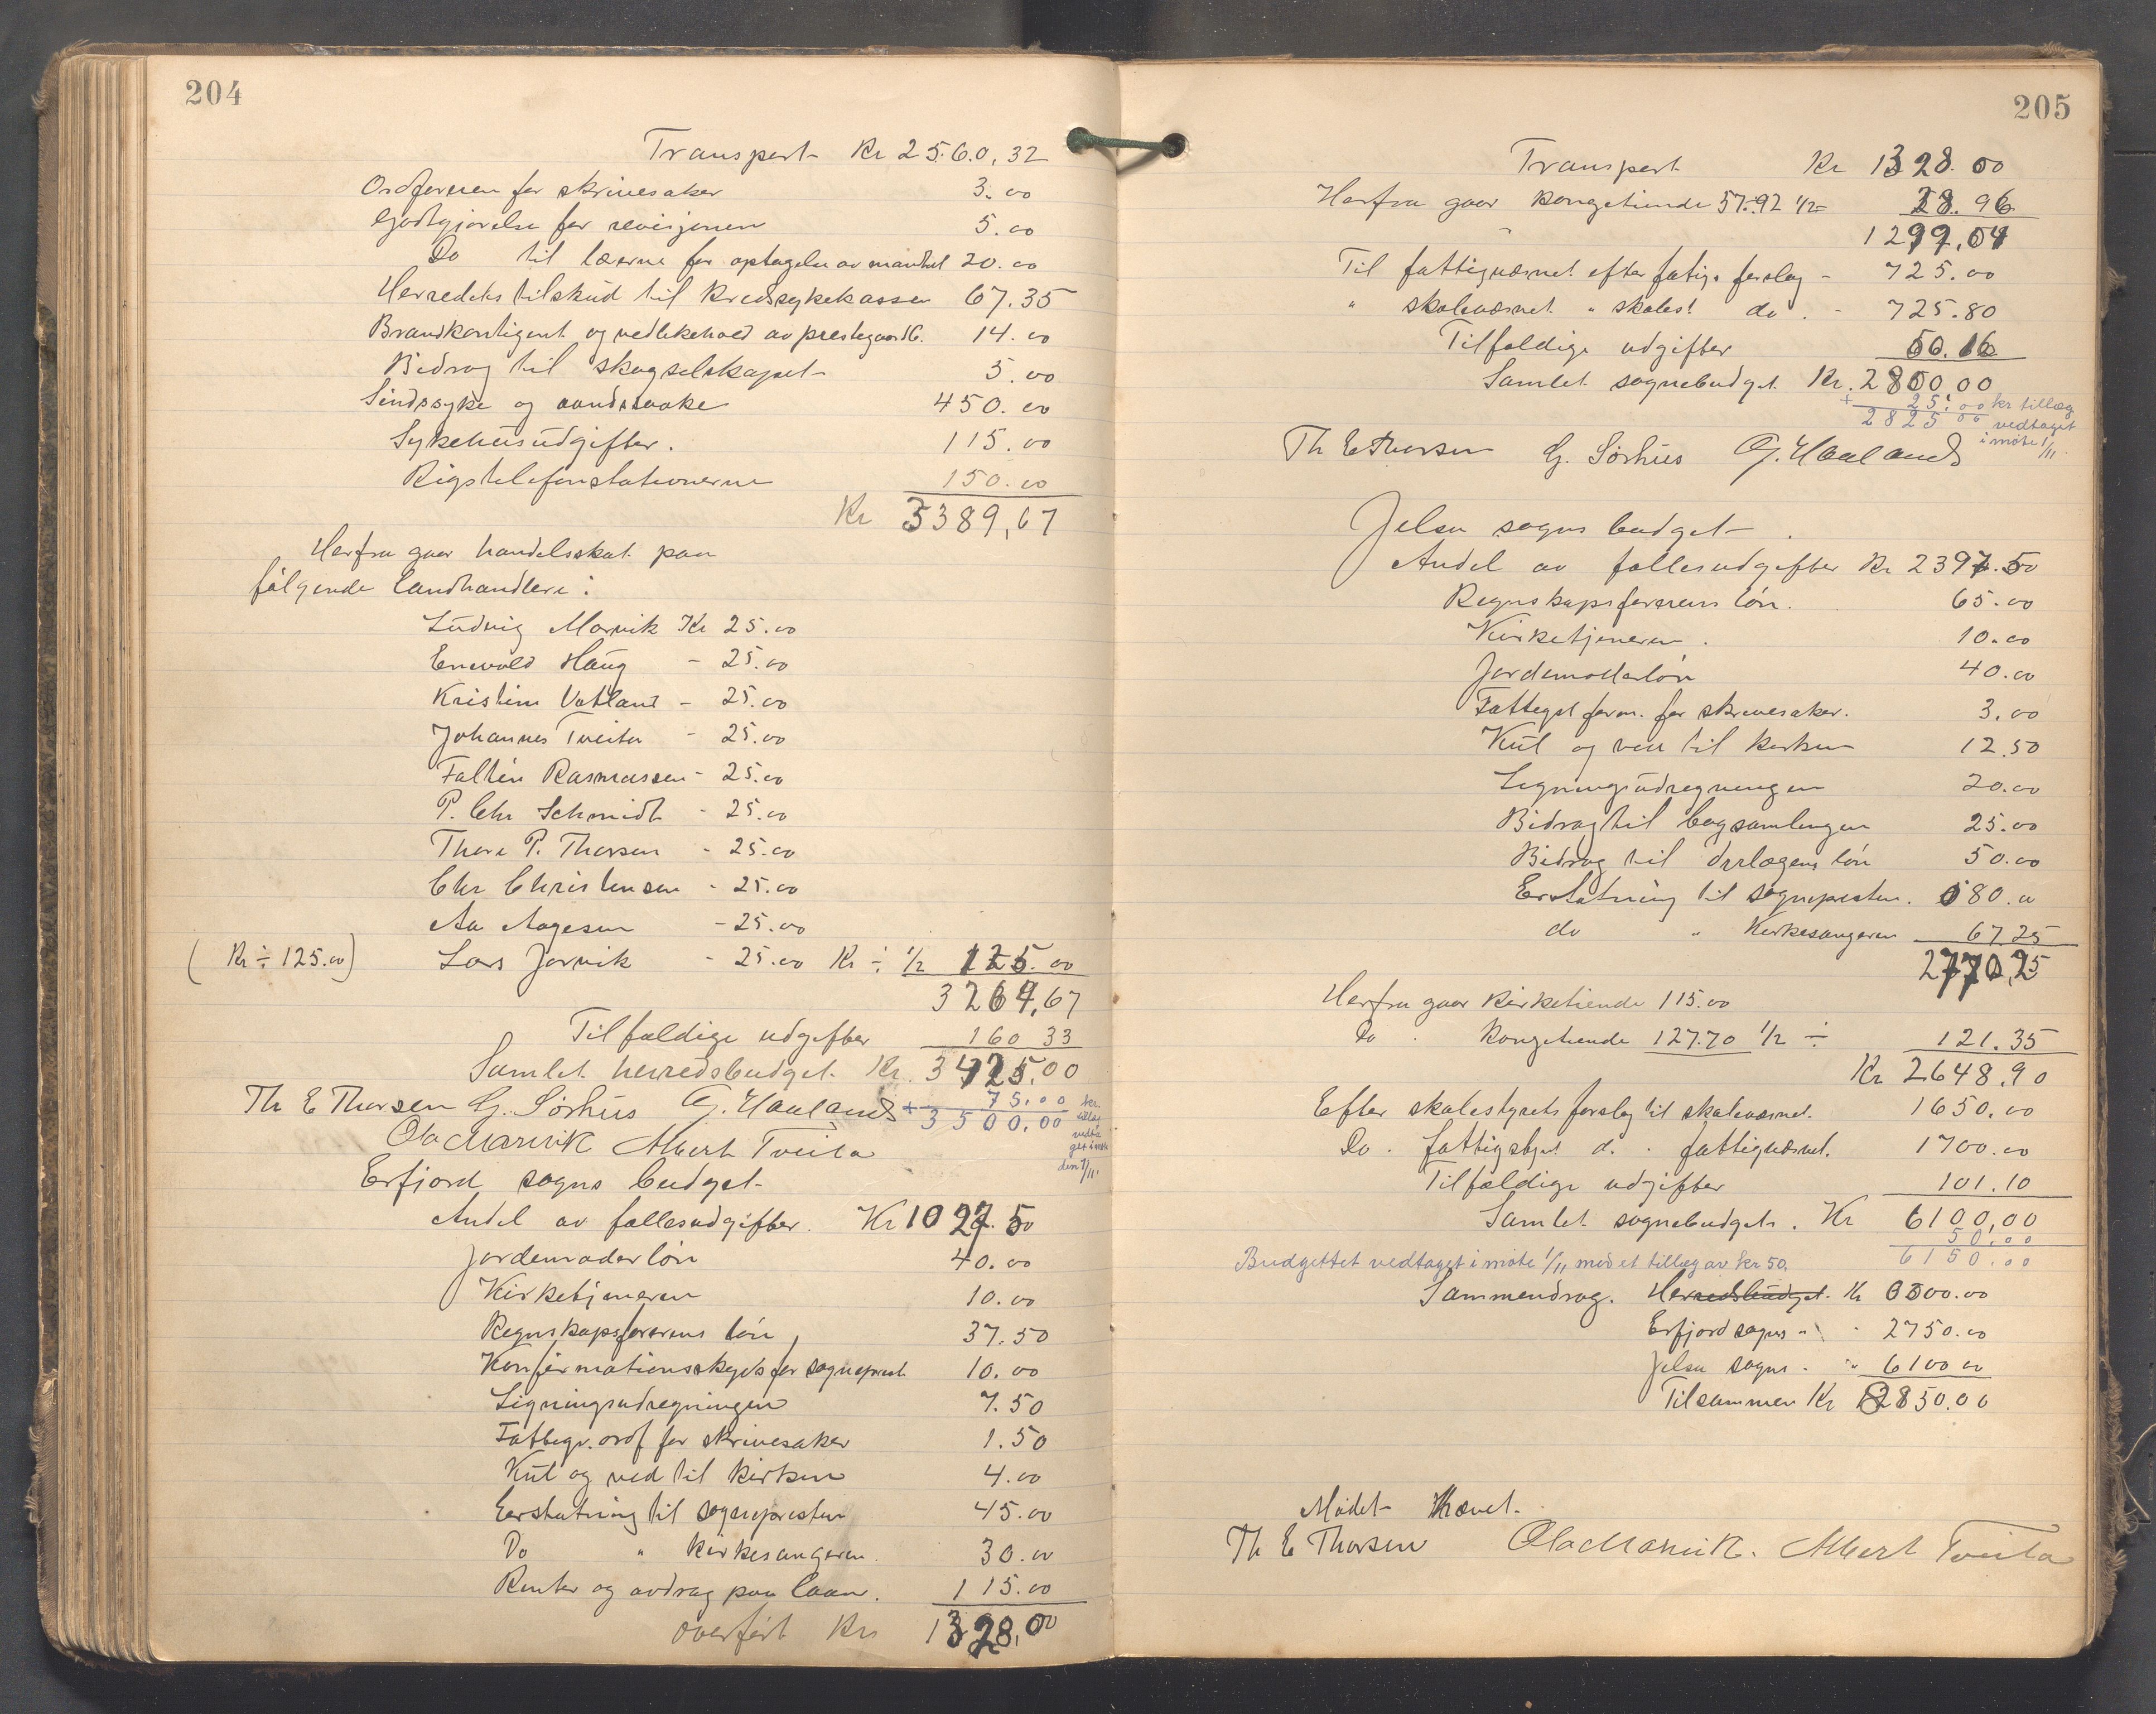 204
Transport Kr 2560,32
Ordføreren for skrivesaker 3.00
Godtgjørelse for revisjonen 5.00
Do til lærerne for optagelse av mantal 20.00
Herredets tilskud til kredssykekassen 67.35
Brandkontigent og vedlikehold av prestegaardb. 14.00
Bidrag til skogselskapet 5.00
Sindssyke og aandssvake 450.00
Sykehusudgifter. 115.00
Rigstelefonstationerne 150.00
Kr 3389,67
Herfra gaar handelsskat paa
følgende landhandlere:
Ludvig Marvik Kr 25.00
Enevold Haug - 25.00
Kristine Vatland - 25.00
Johannes Tveita - 25.00
Faltin Rasmussen - 25.00
P. Chr Schmidt - 25.00
Thore P. Thorsen - 25.00
Chr Christensen - 25.00
Aa Aagesen - 25.00
(Kr ÷ 125.00) Lars Jørvik - 25.00 Kr ÷ 1/2 125.00
3264,67
Tilfældige udgifter 160 33
Samlet herredsbudget Kr. 3425,00
Th E Thorsen G. Sørhus G. Haaland + 75,00 kr.
3500,00 tillæg
vedta
get i møte
den 1/11.
Ola Marvik Albert Tveita
Erfjord sogns budget
Andel av fællesudgifter. Kr 1027.50
Jordemoderløn 40.00
Kirketjeneren 10.00
Regnskapsførerens løn, 37.50
Konfirmationsskyds for sogneprest 10.00
Ligningsudregningen 7.50
Fattigv. ordf for skrivesaker 1.50
Kul og ved til kirken 4.00
Erstatning til sognepresten 45.00
Do " kirkesangeren. 30.00
Renter og avdrag paa laan. 115.00
overført Kr 1328,00
205
Transport Kr 1328.00
Herfra gaar kongetiende 57.92 1/2 28.96
1299,04
Til fattigvæsnet efter fatigs forslag - 725.00
" skolevæsnet " skolest do. - 725.80
Tilfældige udgifter 50.16
Samlet sognebudget Kr. 2800,00
+ 25,00 kr tillæg
2825 00 vedtaget
i møte 1/11
Th E Thorsen G. Sørhus G. Haaland
Jelsa sogns budget.
Andel av fællesudgifter Kr 2397.50
Regnskapsførerens løn. 65.00
Kirketjeneren. 10.00
Jordemoderløn 40.00
Fattigst form. for skrivesaker. 3.00
Kul og ved til kirken 12.50
Ligningsudregningen 20.00
Bidrag til bogsamlingen 25.00
Bidrag til dyrlægens løn 50.00
Erstatning til sognepresten. 80.00
do " Kirkesangeren 67.25
2770,25
Herfra gaar kirketiende 115.00
Do. kongetiende 127.70 1/2 ÷ 121.35
Kr 2648,90
Efter skolestyrets forslag til skolevæsnet. 1650.00
Do. fattigstyret d. . fattigvæsnet. 1700.00
Tilfældige udgifter 101.10
Samlet sognebudget. Kr 6100,00
50,00
Budgettet vedtaget i møte 1/11 med et tillæg av kr 50. 6150,00
Sammendrag. Herredsbudget. Kr
Erfjord sogns " " 2750.00
Jelsa sogns. " 6100 00
Tilsammen Kr 12850.00
Mødet hævet.
Th E Thorsen Ola Marvik. Albert Tveita